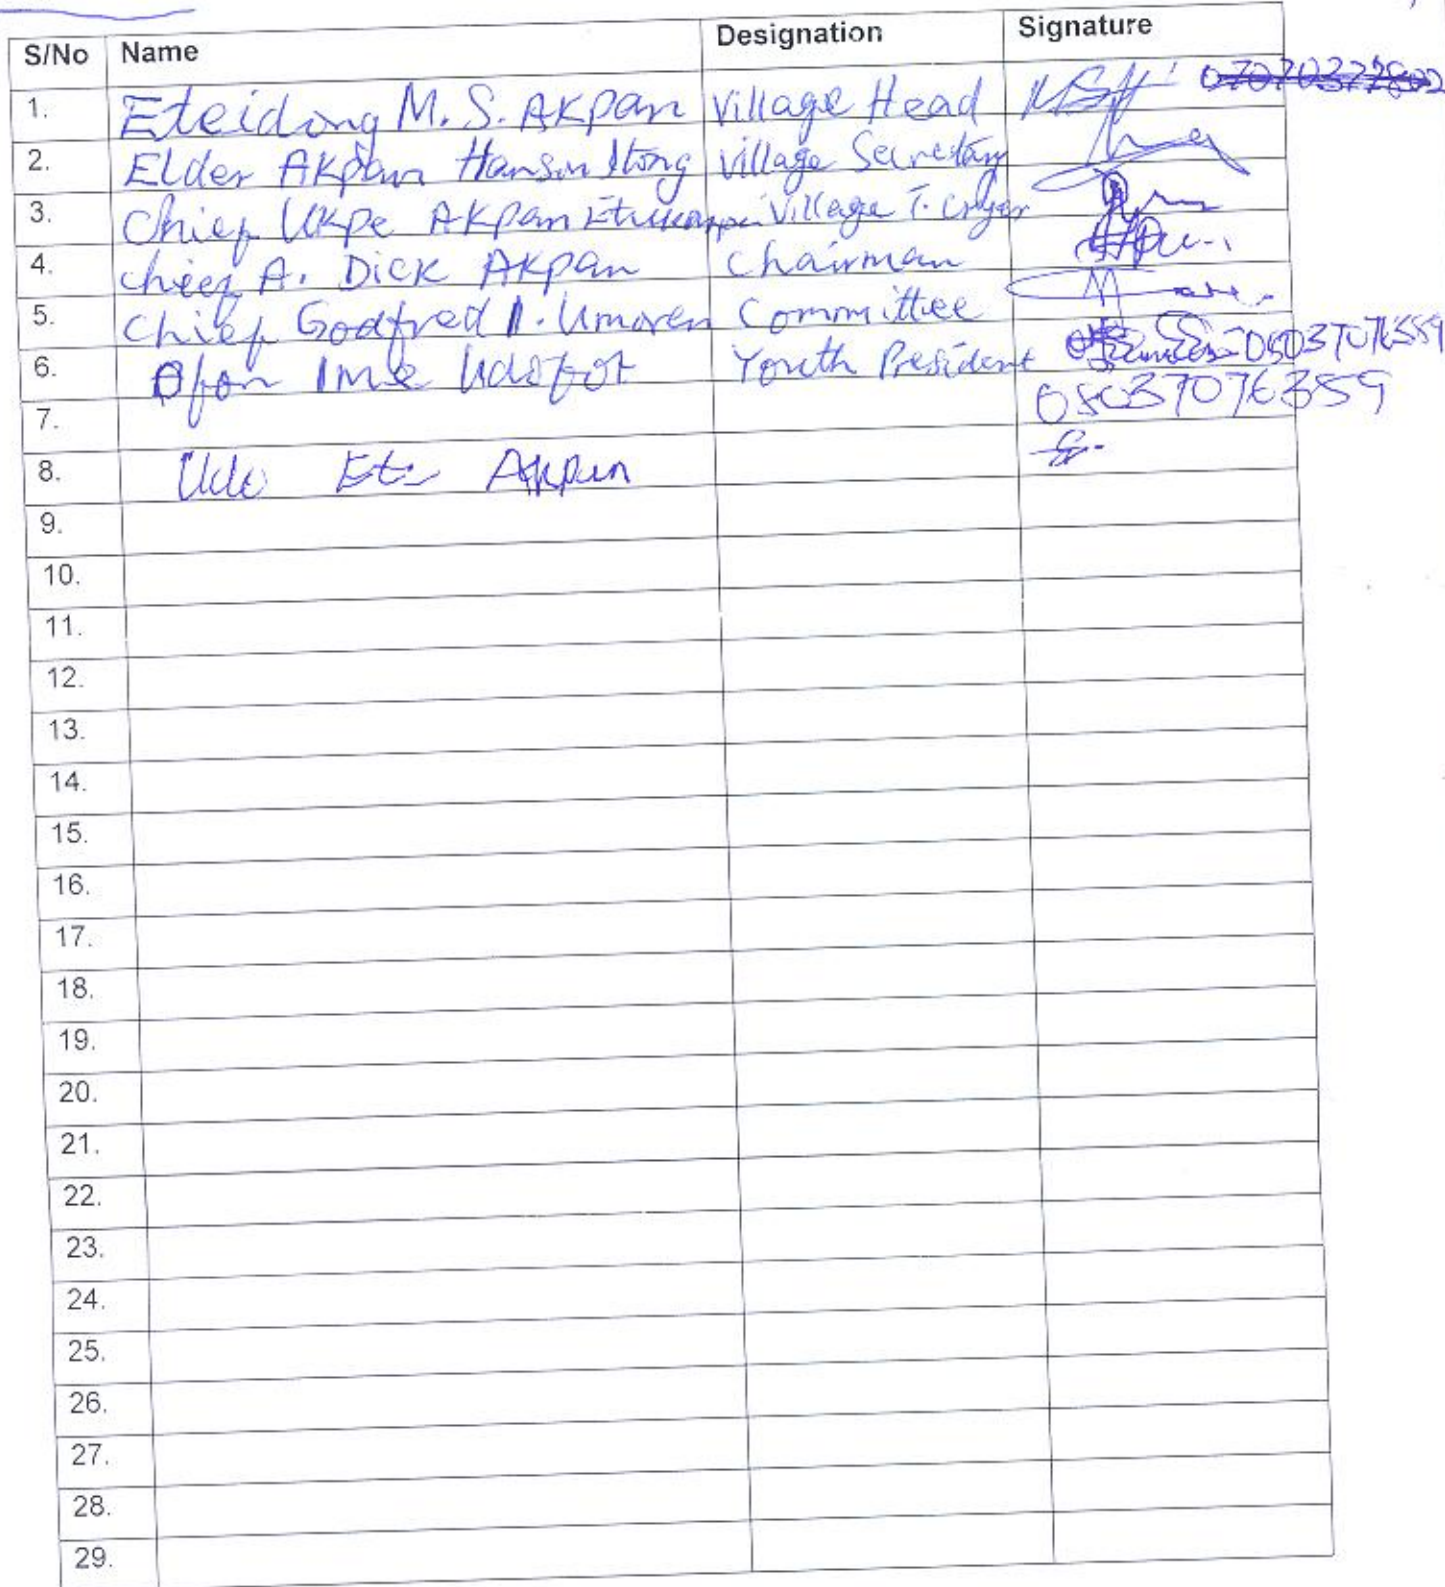 S/No Name Designation Signature
1. Eteidong M. S. Akpan Village Head 07070377802
2. Elder Akpan Hanson Itong Village Secretary
3. Chief Ukpe Akpan Village T. Cryer
4. Chief A. Dick Akpan Chairman
5. Chief Godfred I. Umoren Committee
6. Ofon Ime Udofot Youth President
7. 08037076359
8. Udo Ete Akpan
9.
10.
11.
12.
13.
14.
15.
16.
17.
18.
19.
20.
21.
22.
23.
24.
25.
26.
27.
28.
29.